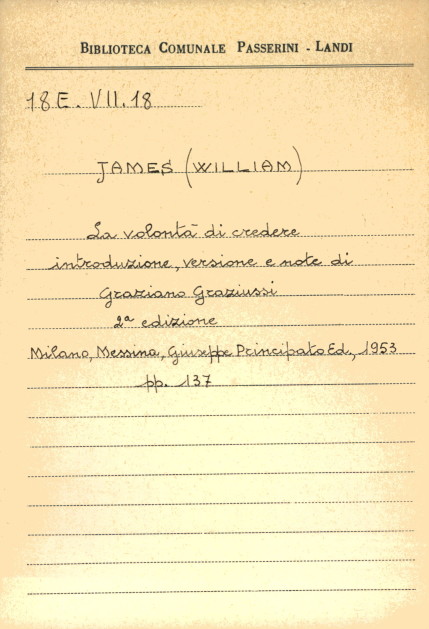 BIBLIOTECA COMUNALE PASSERINI - LANDI
18 E. VII. 18
JAMES (WILLIAM)
La volontà di credere
introduzione, versione e note di
Graziano Graziussi
2ª edizione
Milano, Messina, Giuseppe Principato Ed., 1953
pp. 137